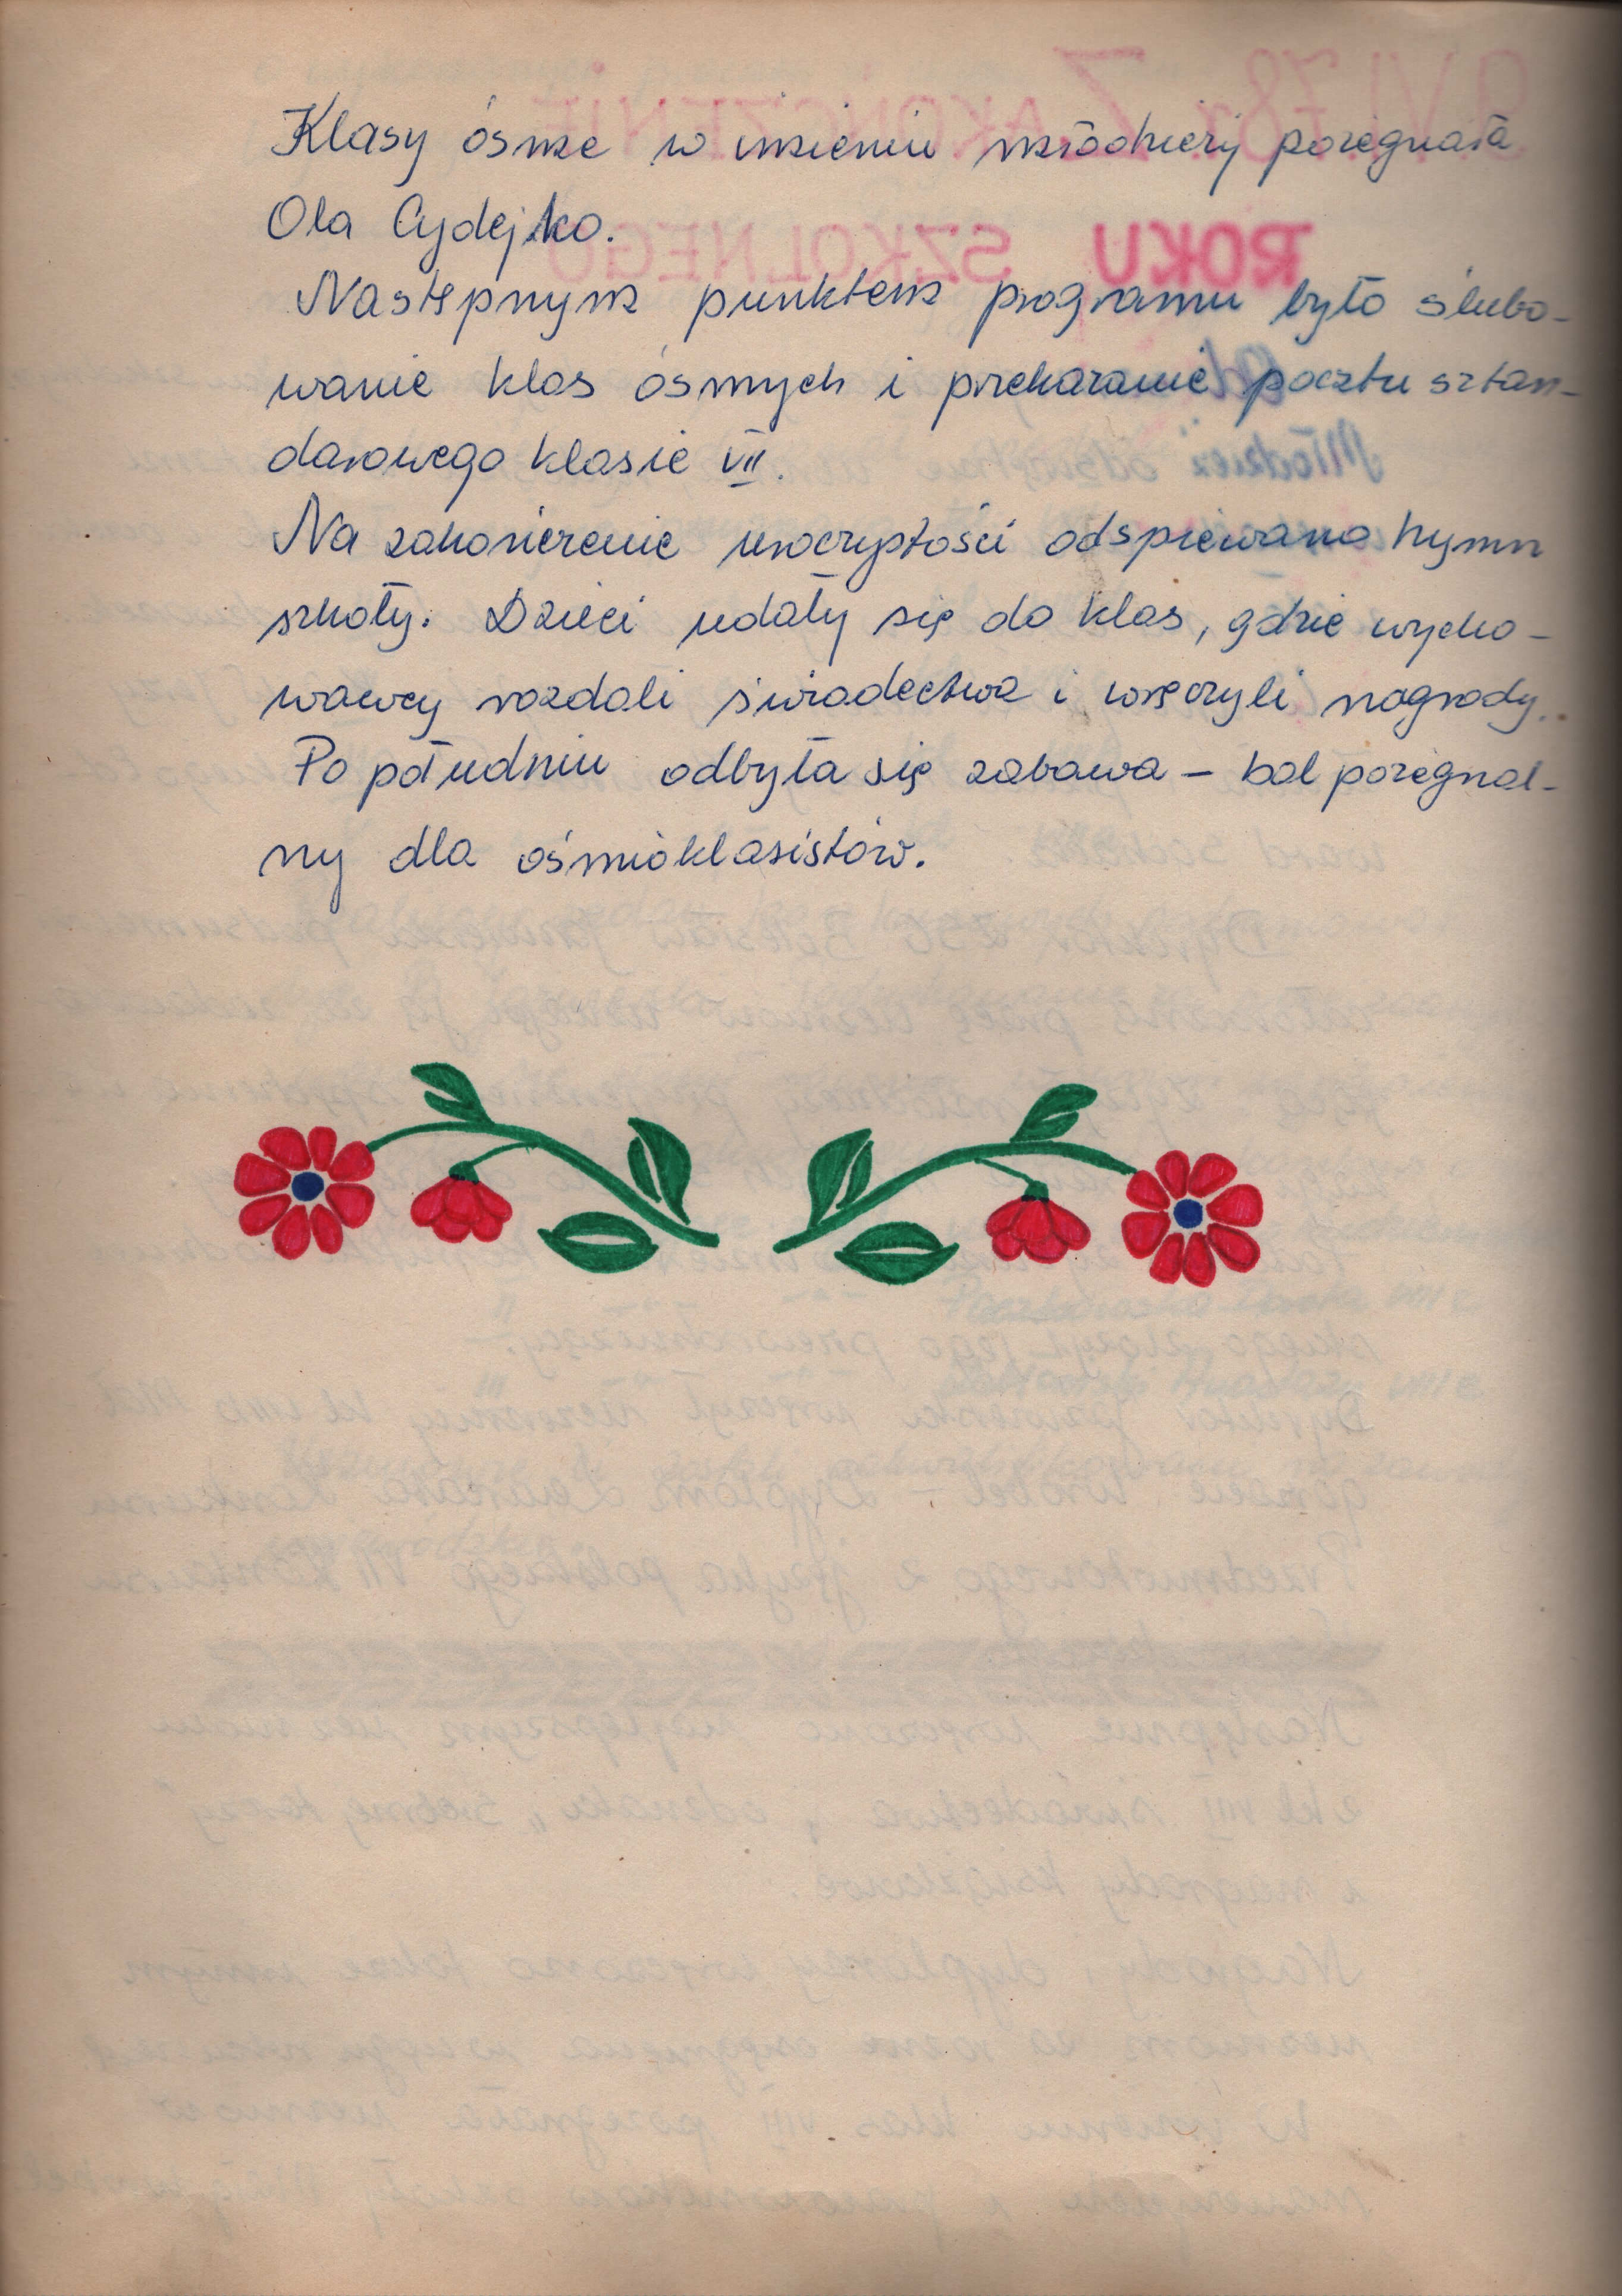 Klasy ósme w imieniu młodzieży pożegnała
Ola Cydejko.
Następnym punktem programu było ślubo-
wanie klas ósmych i przekazanie pocztu sztan-
darowego klasie VII.
Na zakończenie uroczystości odśpiewano hymn
szkoły. Dzieci udały się do klas, gdzie wycho-
wawcy rozdali świadectwa i wręczyli nagrody.
Po południu odbyła się zabawa - bal pożegnal-
ny dla ośmioklasistów.